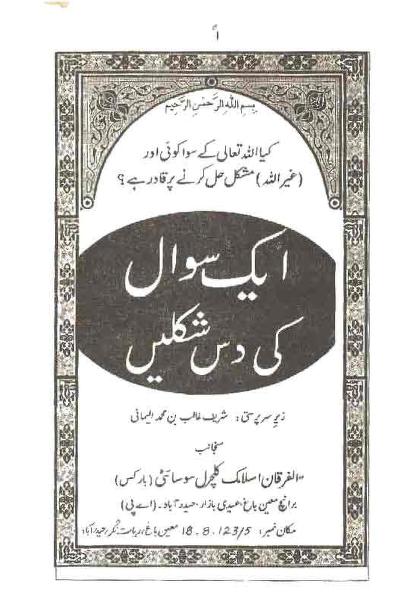 ۱
بسم اللہ الرحمن الرحیم
کیا اللہ تعالی کے سوا کوئی اور
(غیر اللہ) مشکل حل کرنے پر قادر ہے؟
ایک سوال
کی دس شکلیں
زیر سرپرستی: شریف غالب بن محمد الیمانی
منجانب
الفرقان اسلامک کلچرل سوسائٹی (بارکس)
برانچ معین باغ، عیدی بازار، حیدرآباد۔ (اے پی)
مکان نمبر: 18.8.123/5 معین باغ، ریاست نگر، حیدرآباد